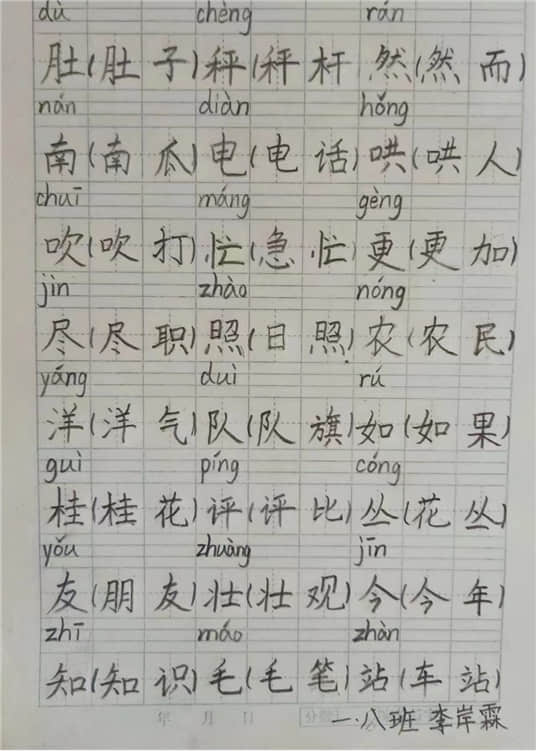 dù chèng rán
肚(肚子)秤(秤杆 然(然而
nán diàn hǒng
南(南瓜)电(电话)哄(哄人)
chuī máng gèng
吹(吹打)忙(急忙)更(更加)
jìn zhào nóng
尽(尽职)照(日照)农(农民)
yáng duì rú
洋(洋气)队(队旗)如(如果)
guì píng cóng
桂(桂花)评(评比)丛(花丛)
yǒu zhuàng jīn
友(朋友)壮(壮观)今(今年)
zhī máo zhàn
知(知识)毛(毛笔)站(车站)
年 月 日
一.八班 李岸霖